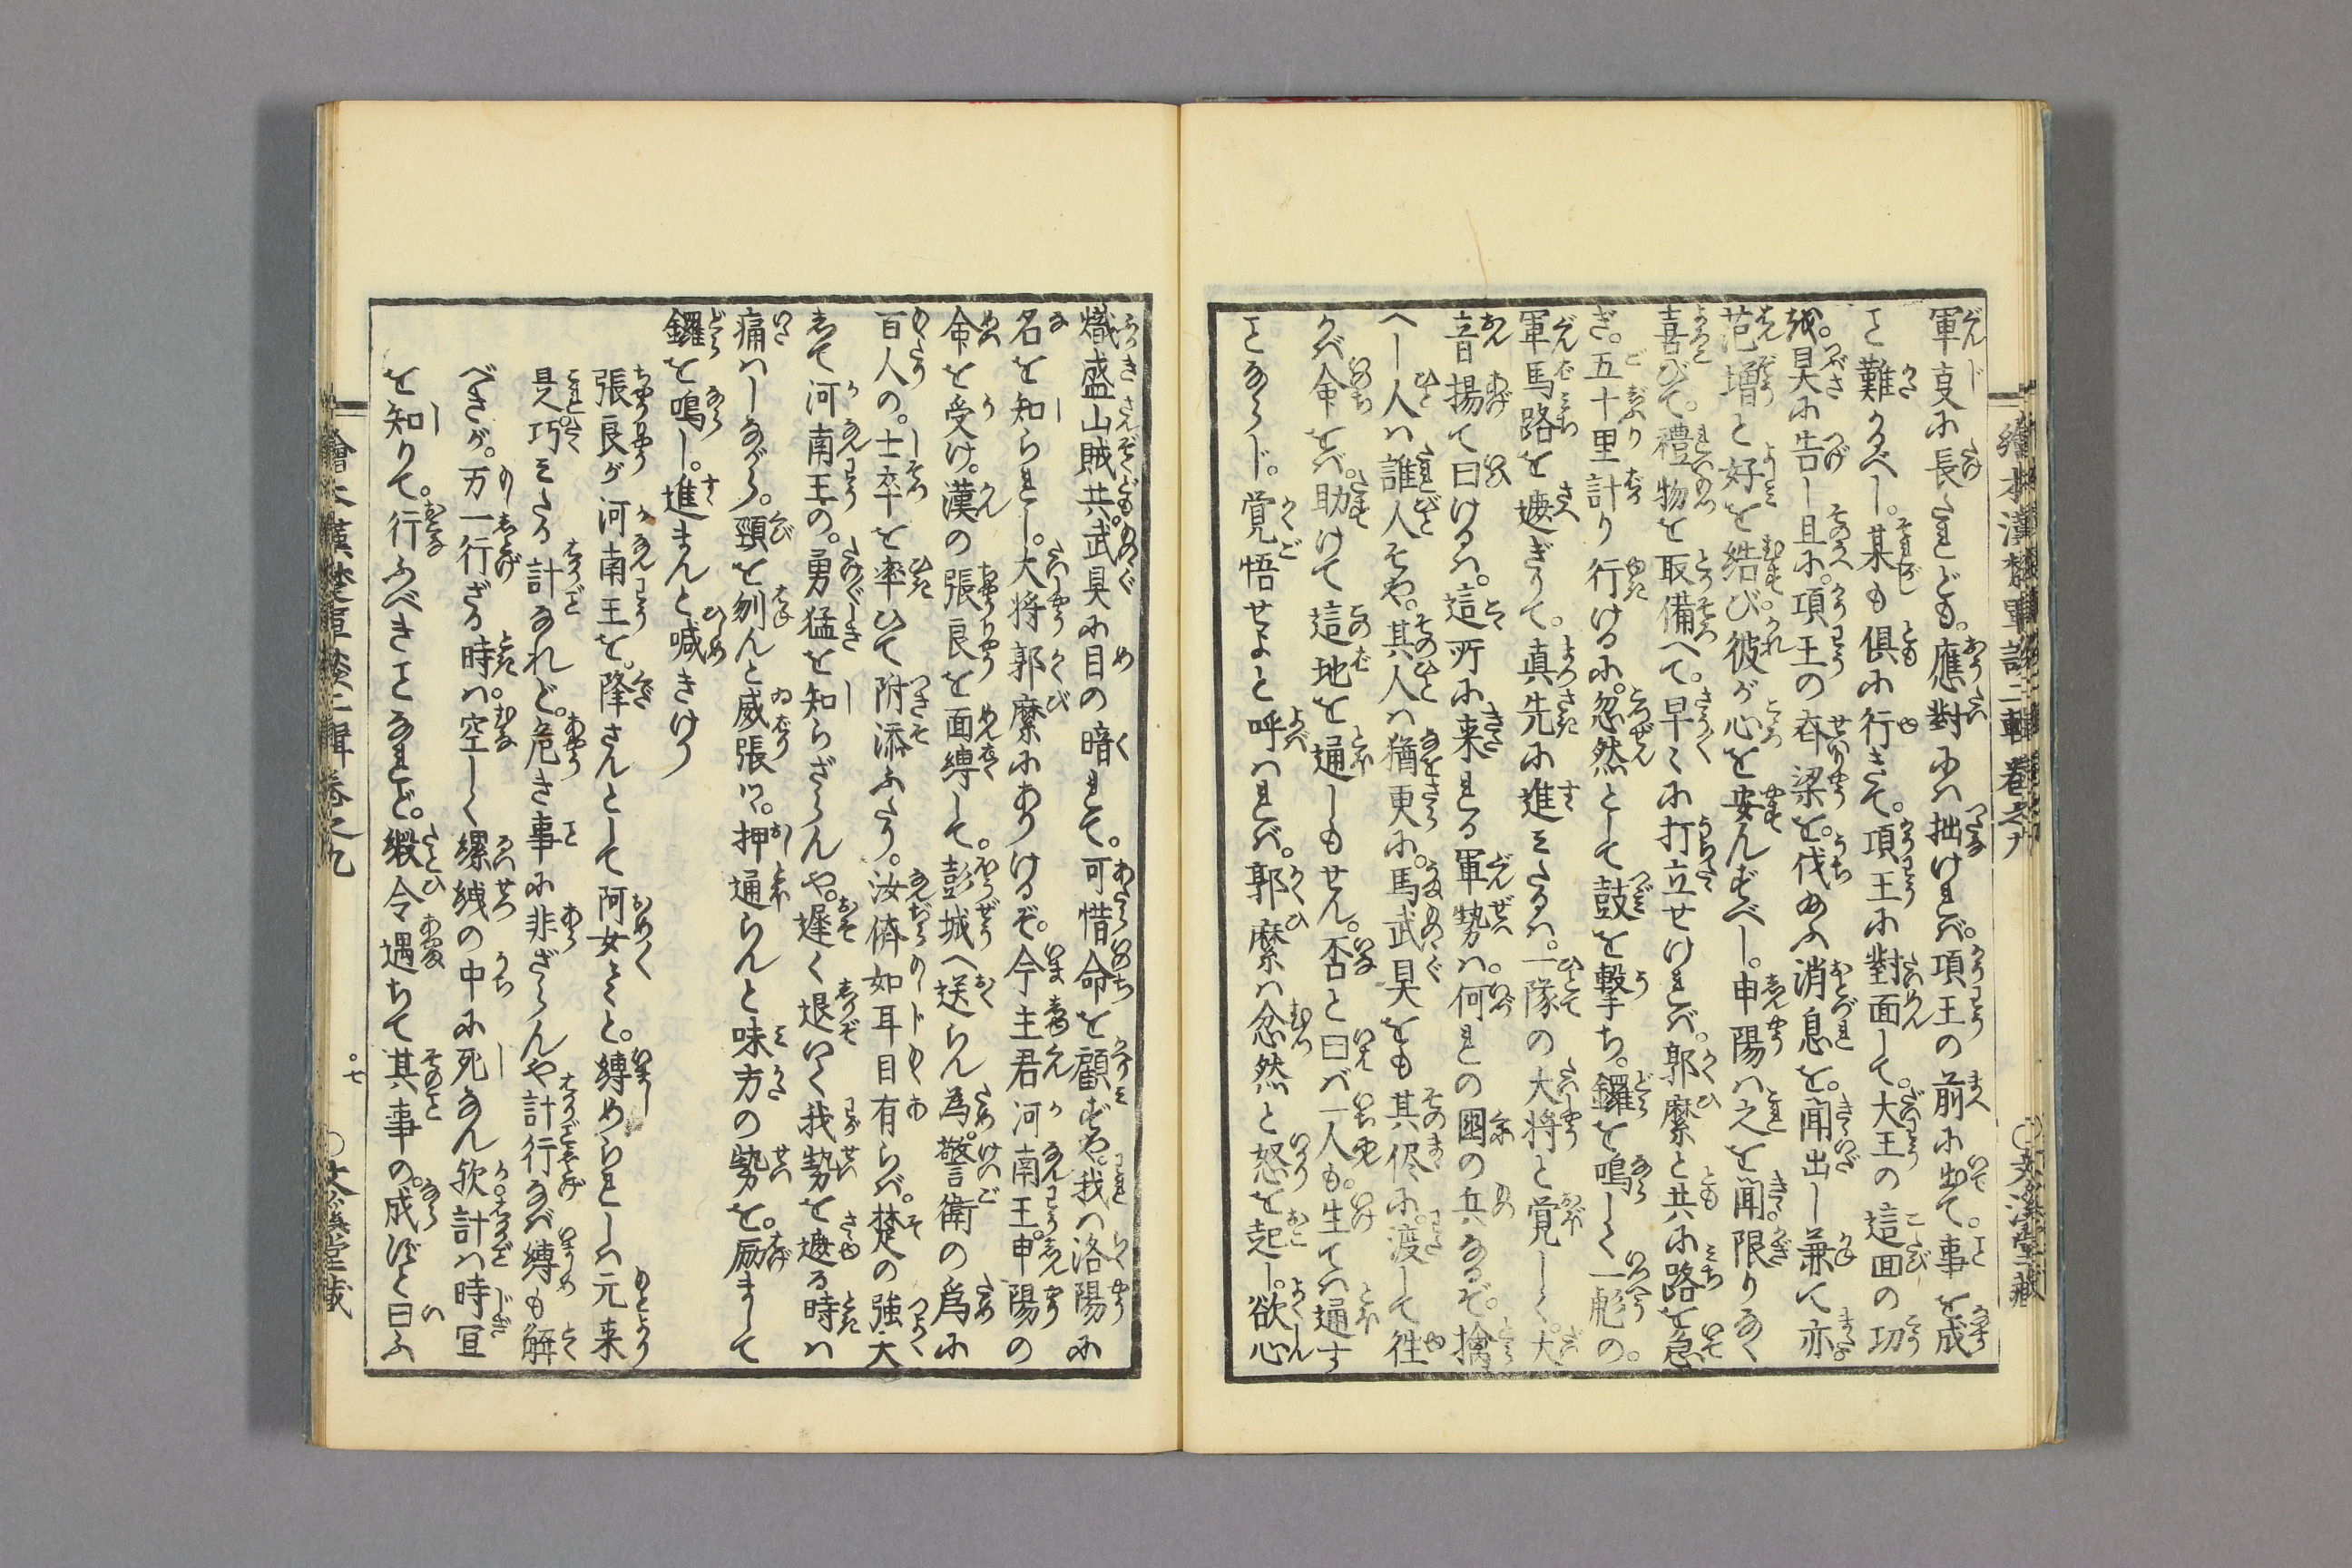 軍事に長たれども。應對には拙ければ。項王の前に出て。事を成
こと難かるべし。某も俱に行きて。項王に對面して。大王の這回の功
を。具に告し且に。項王の斉梁を。伐給ふ消息を。聞出し兼て亦
范増と好を結び彼が心を安んずべし。申陽は之を聞限りなく
喜びて。禮物を取備へて。早々に打立せければ。郭縻と共に路を急
ぎ。五十里計り行けるに。忽然として鼓を擊ち。鑼を鳴しく一彪の。
軍馬路を遮ぎりて。真先に進みたるは。一隊の大将と覚しく。大
音揚て曰けるは。這所に来れる軍勢は。何れの國の兵なるぞ。擒
へし人は誰人ぞや。其人は猶更に。馬武具をも其侭に。渡して徃
かば命をば。助けて這地を通しもせん。否と曰ば一人も。生ては通す
ことならじ。覚悟せよと呼はれば。郭縻は忿然と怒を起し。欲心
熾盛山賊共。武具に目の暗れて。可惜命を顧ずや。我は洛陽に
名を知られし。大将郭縻にありけるぞ。今主君河南王。申陽の
命を受け。漢の張良を面縛して。彭城へ送らん為。警衛の為に
百人の。士卒を率ひて附添ふたり。汝儕如耳目有らば。楚の強大
きて河南王の。勇猛を知らざらんや。遅く退いて我勢を遮る時は
痛はしながら。頸を刎んと威張り。押通らんと味方の勢を。励まして
鑼を鳴し。進まんと喊きけり
張良が河南王を。降さんとして阿女々々と。縛められしは元来
是巧みたる計なれど。危き事に非ざらんや計行なば縛も解
べきが。万一行ざる時は。空しく縲絏の中に死なん欤計は時宜
を知りて。行ふべきことなれど。縦令遇ちて其事の。成ずと曰ふ
繪本漢楚軍談二輯卷之九
〇文溪堂藏
繪本漢楚軍談二輯卷之九
〇七
〇文溪堂藏